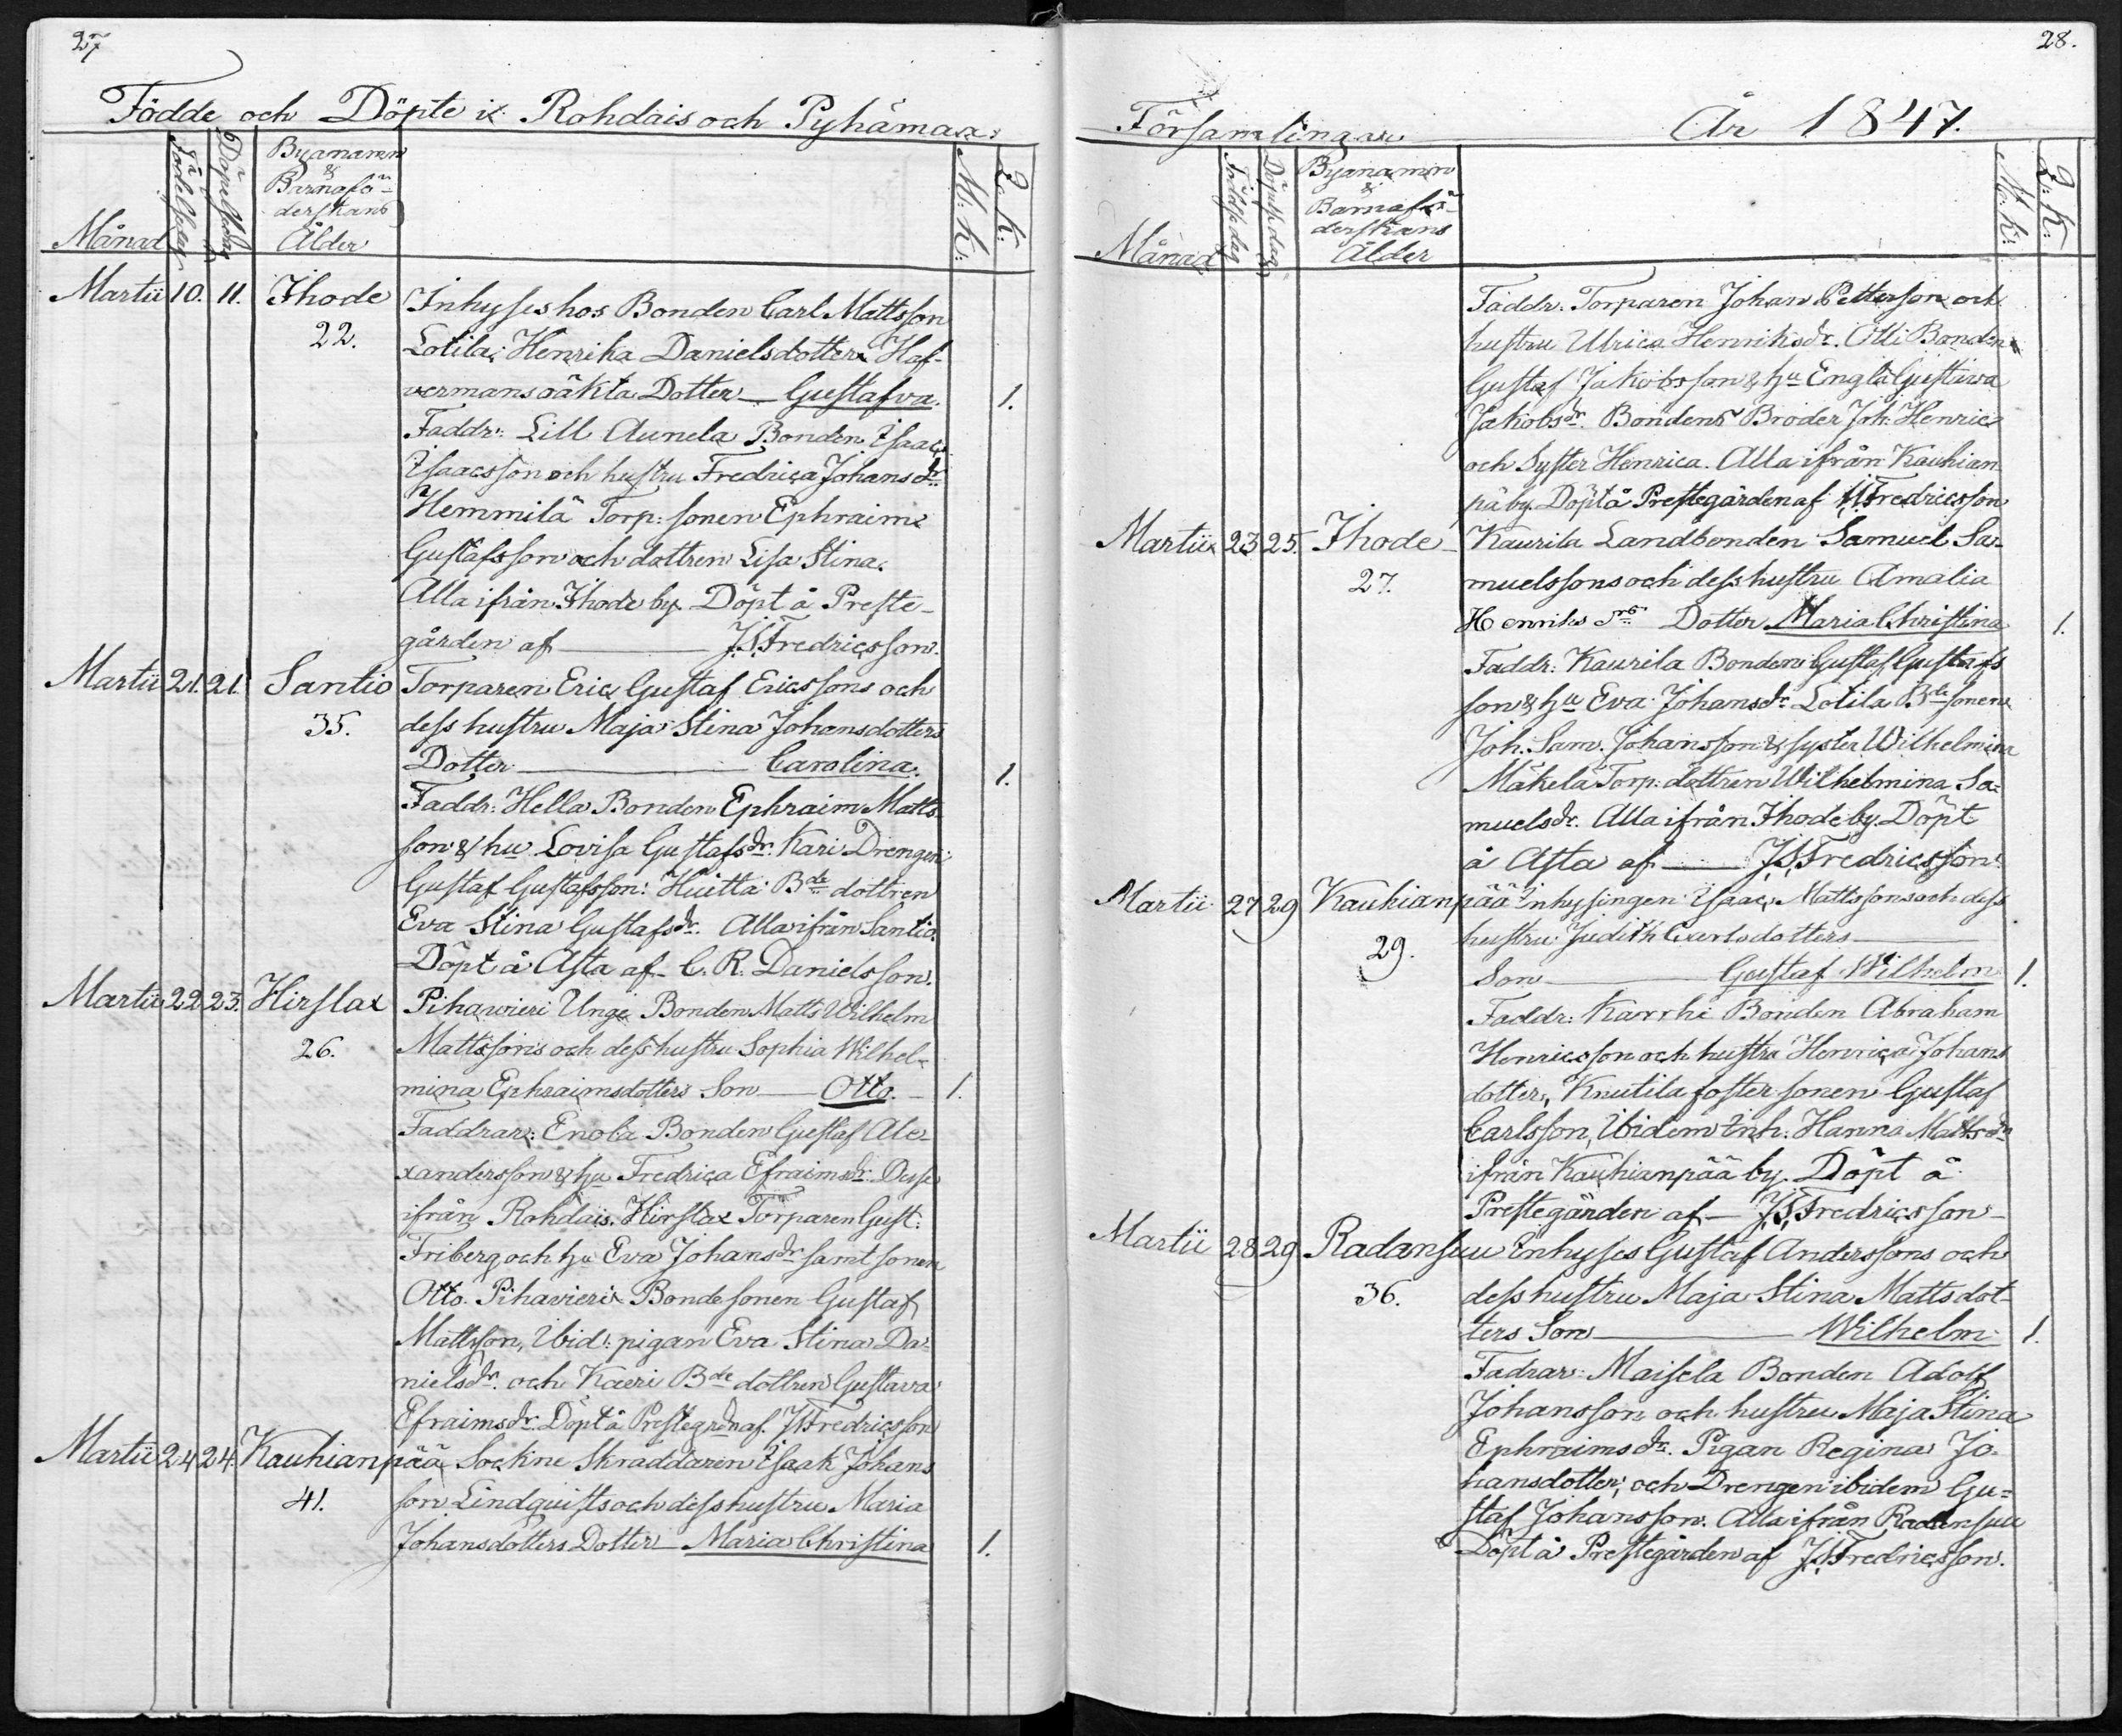 27
Födde och Döpte i Rohdais och Pyhämaa
Månad
Födelsedag
Döpelsedag
Byanamn
&
Barnafö-
derskans
Ålder
M: K:
Q: K:
Martii 10. 11. Ihode Inhyses hos Bonden Carl Mattsson
22. Lotila; Henrika Danielsdotter Haf-
vermans oäkta Dotter Gustafva. 1.
Faddr: Lill Aunela Bonden Isaac
Isaacsson och hustru Fredrica Johansdr.
Hemmilä Torp: sonen Ephraim
Gustafsson och dottren Lisa Stina.
Alla ifrån Ihode by. Döpt å Preste-
gården af J.S. Fredricsson.
Martii 21. 21. Santio Torparen Eric Gustaf Ericssons och
35. dess hustru Maja Stina Johansdotters
Dotter Carolina. 1.
Faddr: Hella Bonden Ephraim Matts
son & hu Lovisa Gustafsdr. Kari Drengen
Gustaf Gustafsson: Huitta Bde dottren
Eva Stina Gustafsdr. Alla ifrån Santio
Döpt å Asta af C. R. Danielsson.
Martii 22 23. Hirslax Pihavieri Unge Bonden Matts Wilhelm
26. Mattssons och dess hustru Sophia Wilhel-
mina Ephraimsdotters Son Otto. 1.
Faddrar: Enola Bonden Gustaf Ale-
xandersson & hu Fredrica Efraimsdr. Desse
ifrån Rohdais. Hirslax Torparen Gust:
Friberg och hu Eva Johansdr samt sonen
Otto. Pihavieri Bondesonen Gustaf
Mattsson, Ibid: pigan Eva Stina Da-
nielsdr. och Kaeri Bde dottren Gustava
Efraimsdr. Döpt å Prestegrdn af. JS Fredricsson
Martii 24 24. Kauhianpää Sockne Skräddaren Isaak Johans
41. son Lindquists och dess hustru Maria
Johansdotters Dotter Maria Christina 1.
28.
Församlingar År 1847.
Månad
Födelsedag
Döpelsedag
Byanamn
&
Barnafö-
derskans
Ålder
M: K:
Q: K:
Faddr: Torparen Johan Petterson och
hustru Ulrica Henriksdr. Olli Bonden
Gustaf Jakobsson & hu Engla Gustava
Jakobsdr. Bondens Broder Joh: Henric
och Syster Henrica. Alla ifrån Kauhian
pä by. Döpt å Prestegården af JS Fredricsson
Martii 23 25. Ihode Kaurila Landbonden Samuel Sa-
27. muelssons och dess hustru Amalia
Henriksdrs Dotter Maria Christina 1.
Faddr: Kaurila Bonden Gustaf Gustafs
son & hu Eva Johansdr. Lotila Bde sonen
Joh. Sam. Johansson & syster Wilhelmina
Mäkelä Torp: dottren Wilhelmina Sa-
muelsdr. Alla ifrån Ihode by. Döpt
å Asta af J.S. Fredricsson.
Martii 27 29 Kauhianpää Inhysingen Isaac Mattssons och dess
29. hustru Judith Carlsdotters
Son Gustaf Wilhelm 1.
Faddr: Karrhi Bonden Abraham
Henricsson och hustru Henrica Johans
dotter, Knutila foster sonen Gustaf
Carlsson, Ibidem Inh: Hanna Mattsdr
ifrån Kauhianpää by. Döpt å
Prestegården af J.S. Fredricsson
Martii 28 29 Radansuu Inhyses Gustaf Anderssons och
36. dess hustru Maja Stina Mattsdot-
ters Son Wilhelm 1.
Fadrar: Maisela Bonden Adolf
Johansson och hustru Maja Stina
Ephraimsdr. Pigan Regina Jo-
hansdotter, och Drengen ibidem Gu-
staf Johansson. Alla ifrån Radansuu
Döpt å Prestegården af J.S. Fredricsson.